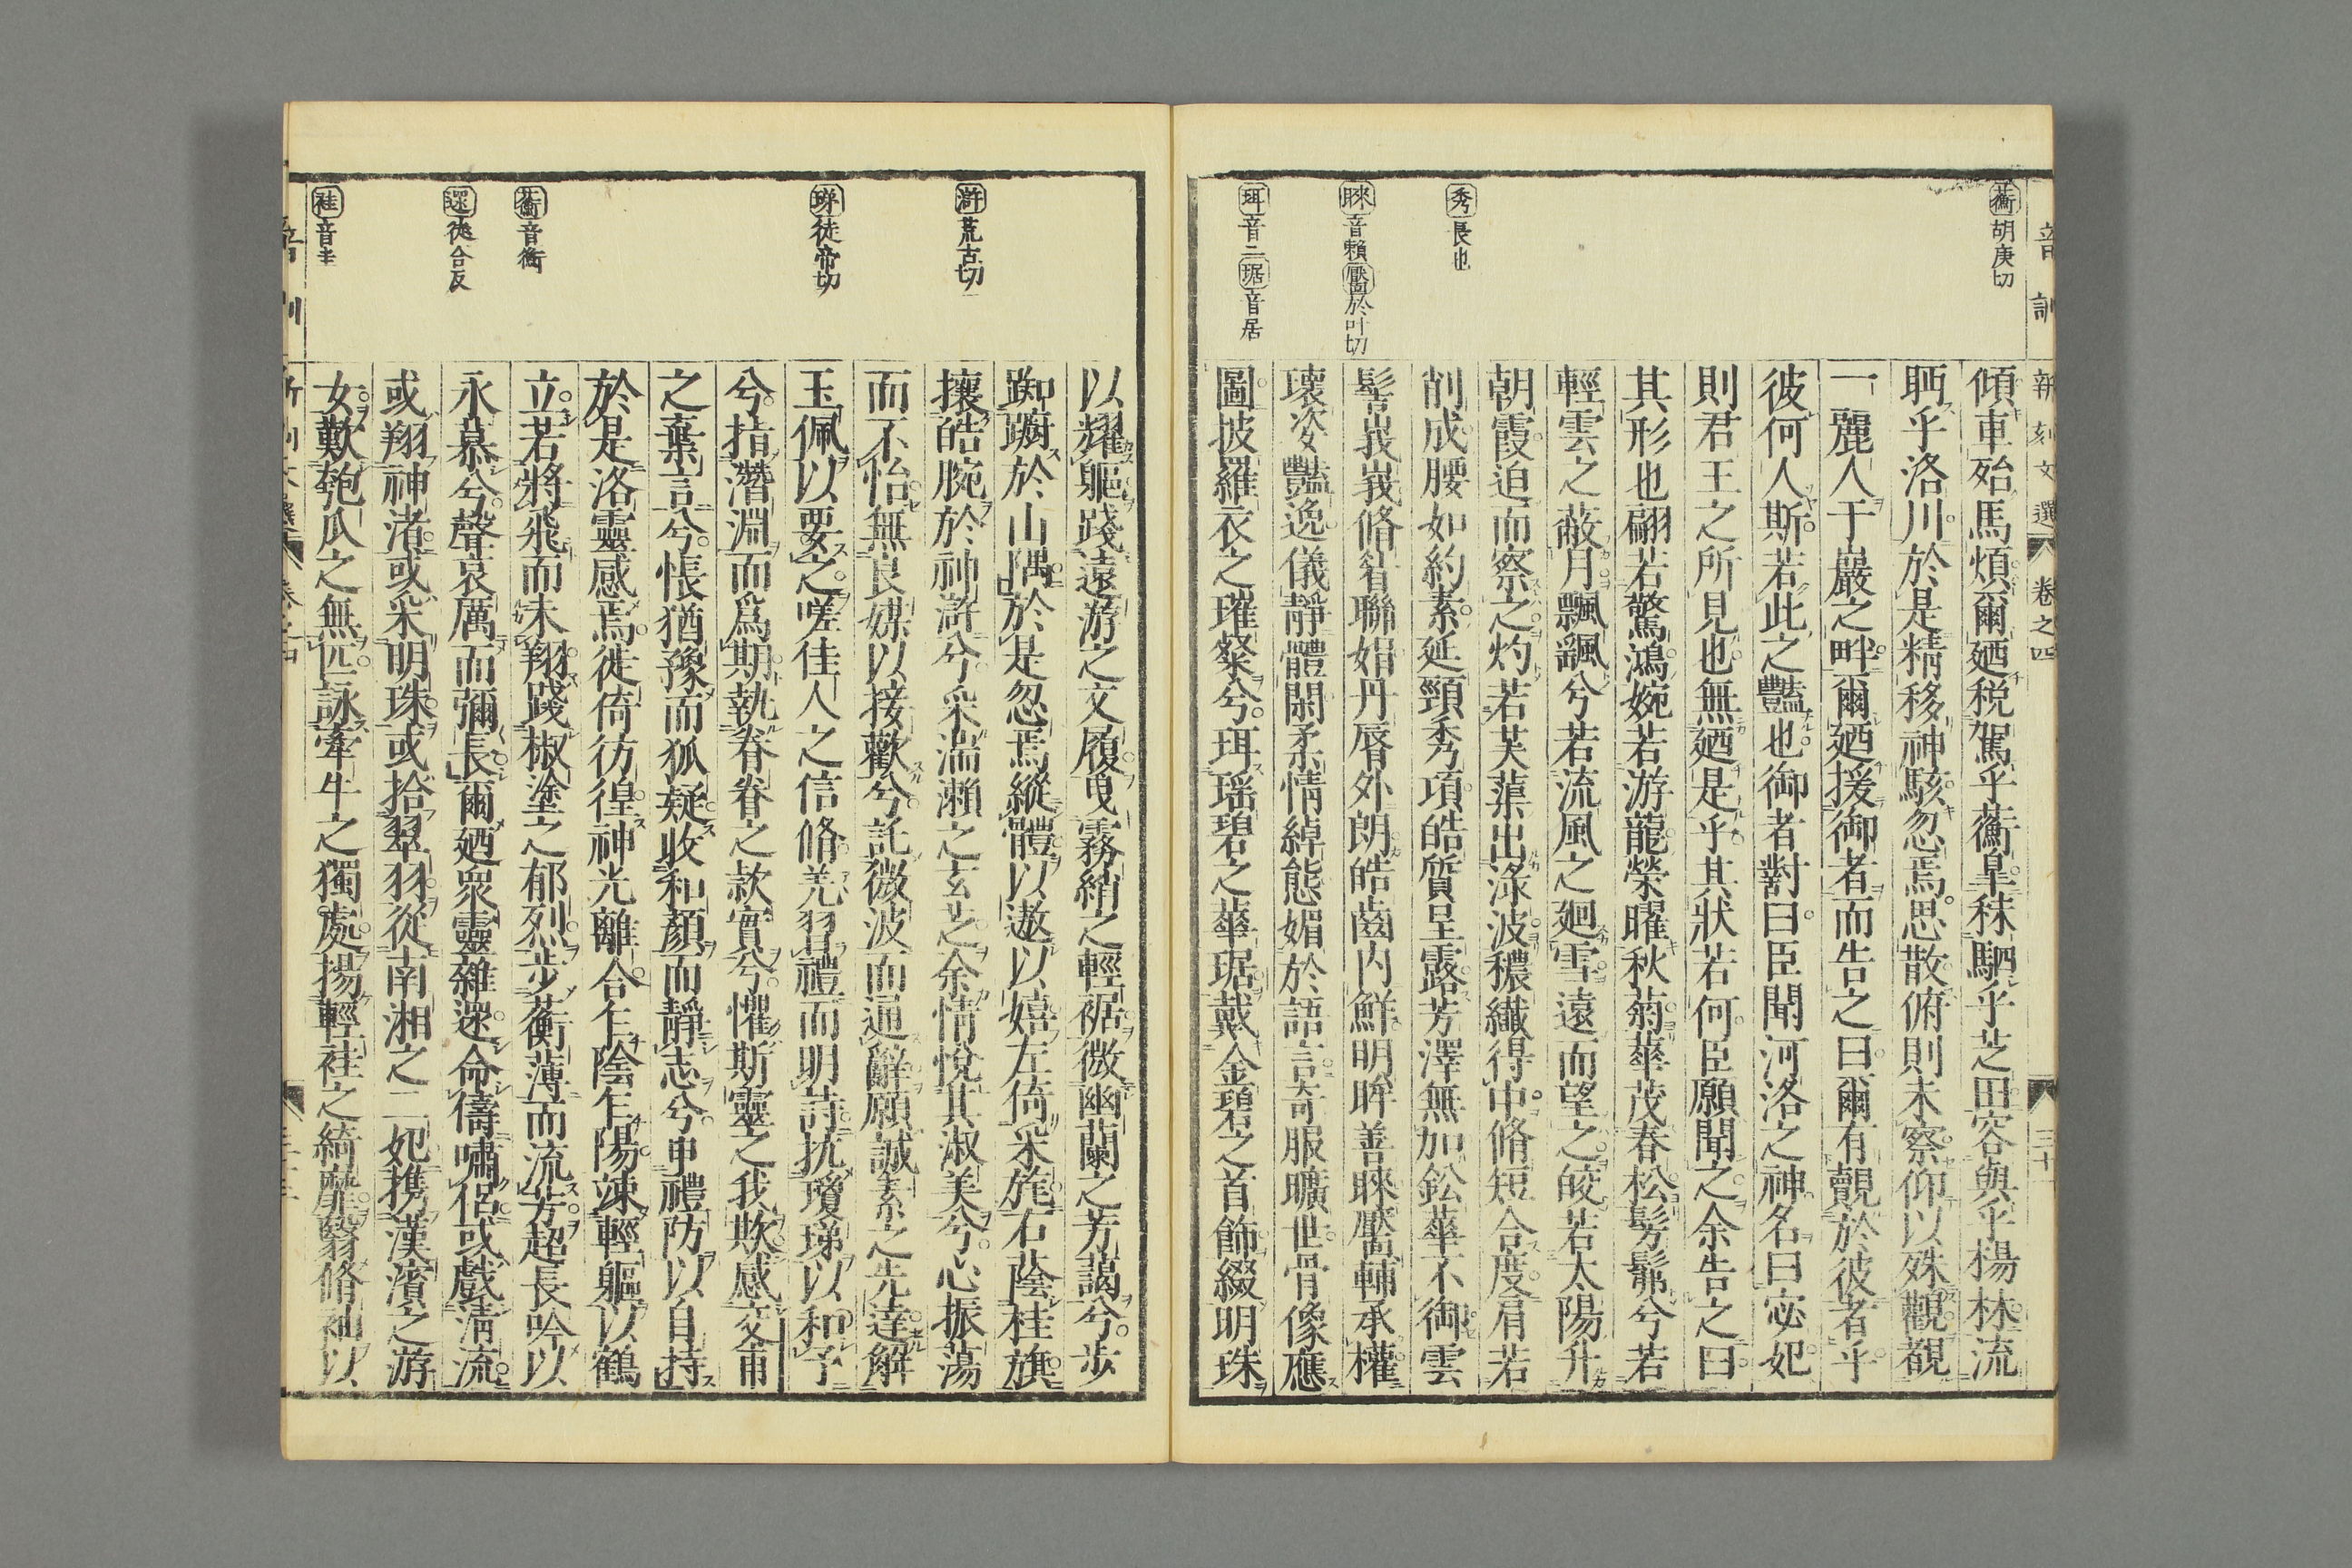 音訓
新刻文選
卷之四
三十一
蘅胡庚切
秀長也
睞音賴靨於叶切
珥音二琚音居
傾車殆馬煩爾廼税駕乎蘅皐秣駟乎芝田容與乎楊林流
眄乎洛川於是精移神駭忽焉思散俯則未察仰以殊觀覩
一麗人于巖之畔爾廼援御者而告之曰爾有覿於彼者乎
彼何人斯若此之豔也御者對曰臣聞河洛之神名曰宓妃
則君王之所見也無廼是乎其狀若何臣願聞之余告之曰
其形也翩若驚鴻婉若游龍榮曜秋菊華茂春松髣髴兮若
輕雲之蔽月飄颻兮若流風之廻雪遠而望之皎若太陽升
朝霞迫而察之灼若芙蕖出淥波穠纖得中脩短合度肩若
削成腰如約素延頸秀項皓質呈露芳澤無加鈆華不御雲
髻峩峩脩眉聯娟丹脣外朗皓齒内鮮明眸善睞靨輔承權
瓌姿豔逸儀靜體閑柔情綽態媚於語言奇服曠世骨像應
圖披羅衣之璀粲兮珥瑶碧之華琚戴金翠之首飾綴明珠
滸荒古切
㻛徒帝切
蘅音衡
遝徒合反
袿音圭
以耀軀踐遠游之文履曳霧綃之輕裾微幽蘭之芳藹兮步
踟蹰於山隅於是忽焉縱體以遨以嬉左倚采旄右蔭桂旗
攘皓腕於神滸兮采湍瀨之玄芝余情悅其淑美兮心振蕩
而不怡無良媒以接歡兮託微波而通辭願誠素之先達解
玉佩以要之嗟佳人之信脩羌習禮而明詩抗瓊㻛以和予
兮指潛淵而爲期執眷眷之款實兮懼斯靈之我欺感交甫
之棄言兮悵猶豫而狐疑收和顏而靜志兮申禮防以自持
於是洛靈感焉徙倚彷徨神光離合乍陰乍陽竦輕軀以鶴
立若將飛而未翔踐椒塗之郁烈步蘅薄而流芳超長吟以
永慕兮聲哀厲而彌長爾廼衆靈雜遝命儔嘯侶或戲清流
或翔神渚或采明珠或拾翠羽從南湘之二妃攜漢濱之游
女歎匏瓜之無匹詠牽牛之獨處揚輕袿之綺靡翳脩袖以